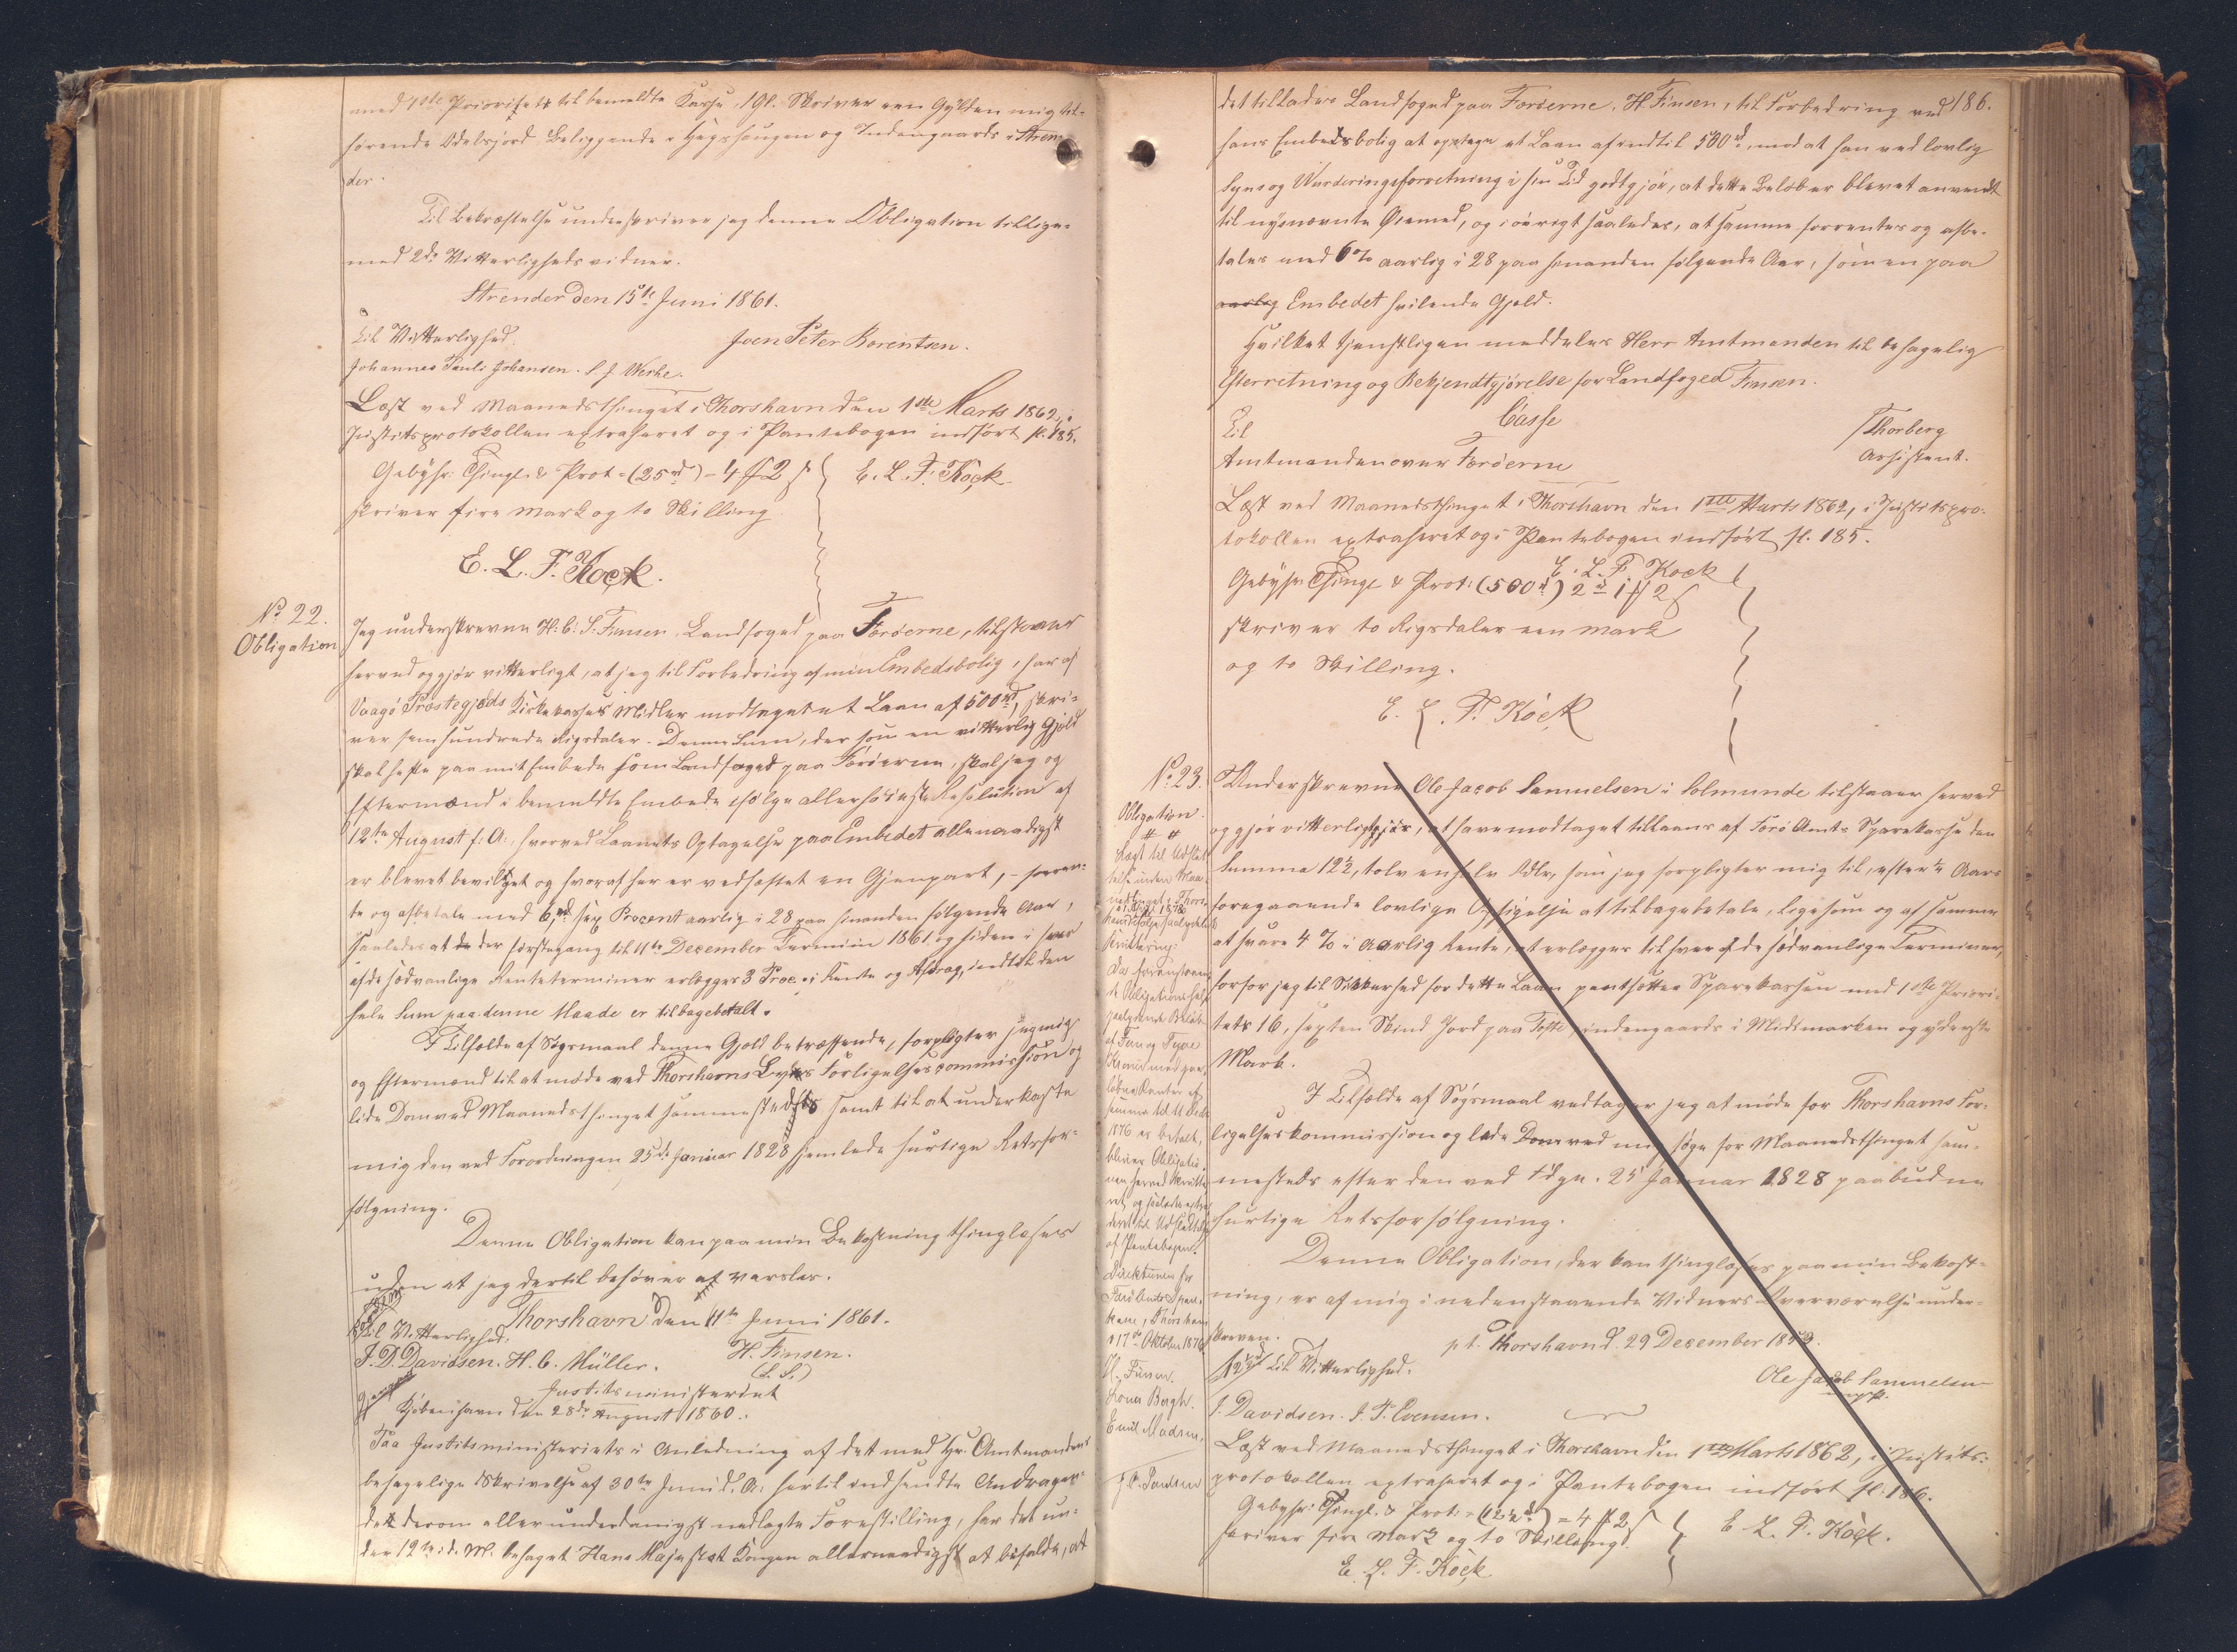 med 1ste Prioritets til bemeldte Kasse 1 Gl. skriver een Gylden mig til-
hørende Odelsjord beliggende i Høgshougen og Indengaards i Stren-
der.
Til Bekræftelse underskriver jeg denne Obligation tillige-
med 2de Vitterlighedsvidner.
Strender den 15te Juni 1861.
Til Vitterlighed. Joen Peter Borentsen.
Johannes Pauli Johansen. S. J. Weihe.
Læst ved Maanedsthinget i Thorshavn den 1ste Marts 1862, i
Justitsprotokollen extraheret og i Pantebogen indført fl. 185.
Gebyhr: Thingl. & Prot = (25rd) - 4 ₰ 2 ß E. L. F. Kock.
skriver fire Mark og to Skilling
E. L. F. Kock.
No 22.
Obligation
Jeg underskrevne H: C: S. Finsen, Landfoged paa Færøerne, tilstaaer
herved og gjør vitterligt, at jeg til Forbedring af min Embedsbolig, har af
Vaagø Præstegjælds Kirkekasses Midler modtaget et Laan af 500rd, skri-
ver fem hundrede Rigsdaler. Denne Sum, der som en vitterlig Gjæld
skal hæfte paa mit Embede som Landfoged paa Færøerne, skal jeg og
Eftermænd i bemeldte Embede ifølge allerhøieste Resolution af
12te August f: A:, hvorved Laanets Optagelse paa Embedet allernaadigst
er blevet bevilget og hvoraf her er vedhæftet en Gjenpart, - forren-
te og afbetale med 6, sex Procent aarlig i 28 paa hinanden følgende Aar,
saaledes at der førstegang til 11te December Termin 1861 og siden i hver
af de sædvanlige Renteterminer erlægges 3 Proc. i Rente og Afdrag, indtil den
hele Sum paa denne Maade er tilbagebetalt.
I Tilfælde af Søgsmaal denne Gjæld betræffende, forpligter jeg mig
og Eftermænd til at møde ved Thorshavns Byes Forligelsescommission og
lide Dom ved Maanedsthinget sammesteds samt til at underkaste
mig den ved Forordningen 25de Januar 1828 hjemlede hurtige Retsfor-
følgning.
Denne Obligation kan paa min Bekostning thinglæses
uden at jeg dertil behøver at varsles.
Thorshavn den 11te Juni 1861.
Til Vitterlighed. H. Finsen.
J. D. Davidsen. H. C. Müller. (L. S.)
Gjenpart
Justitsministeriet
Kjøbenhavn den 28de August 1860.
Paa Justitsministeriets i Anledning af det med Hr. Amtmandens
behagelige Skrivelse af 30te Juni d. A: hertil indsendte Andragen-
de derom allerunderdanigst nedlagte Forestilling, har det un-
der 12te i d. M. behaget Hans Majestæt Kongen allernaadigst at befale, at
186.
det tillades Landfoged paa Færøerne, H. Finsen, til Forbedring ved
hans Embedsbolig at optage et Laan af indtil 500rd, mod at han ved lovlig
Syns og Vurderingsforretning i sin Tid godtgjør, at dette Beløb er blevet anvendt
til nysnævnte Øiemed, og i øvrigt saaledes, at samme forrentes og afbe-
tales med 6% aarlig i 28 paa hinanden følgende Aar, som en paa
aarlig Embedet hvilende Gjæld.
Hvilket tjenstligen meddeles Herr Amtmanden til behagelig
Efterretning og Bekjendtgjørelse for Landfoged Finsen.
Casse
Til /Thorberg
Amtmanden over Færøerne Assistent.
Læst ved Maanedsthinget i Thorshavn den 1ste Marts 1862, i Justitspro-
tokollen extraheret og i Pantebogen indført fl. 185.
E. L. F. Kock
Gebyhr: Thingl & Prot: (500rd) 2rd 1 ₰ 2 ß
skriver to Rigsdaler een Mark
og to Skilling.
E. L. F. Kock
No 23.
Obligation
Lagt til Udslet-
telse inden Maa-
nedsthinget i Thors-
havn
Kvittering:
Da foranstaaen-
de Obligations
paalydende Beløb
af Fem og Tyve
Kroner med paa-
løbne Renter af
samme til 11 Decbr
1876 er betalt,
bliver Obligatio-
nen herved kvitte-
ret og
til Udslettelse
af Pantebogen.
Direktionen for
Færø Amts Spare-
kasse, Thorshavn
d 17de Oktober 1876
H. Finsen.
Lona Bergh.
Emil Madsen.
Underskrevne Ole Jacob Samuelsen i Solmunde tilstaaer herved
og gjør vitterligt, at have modtaget tillaans af Færø Amts Sparekasse den
Summa 12½, tolv en halv Rdlr, som jeg forpligter mig til, efter ½ Aars
foregaaende lovlige Opsigelse at tilbagebetale, ligesom og af samme
at svare 4 % i aarlig Rente, at erlægges til hver af de sædvanlige Terminer,
hvorfor jeg til Sikkerhed for dette Laan pantsætter Sparekassen med 1ste Priori-
tets 16, sexten Skind Jord paa Tofte, indengaards i Midtmarken og yderste
Mark.
I Tilfælde af Søgsmaal vedtager jeg at møde for Thorshavns For-
ligelseskommission og lade Dom ved mig søge for Maanedsthinget sam-
mesteds efter den ved Fdgn. 25 Januar 1828 paabudne
hurtige Retsforfølgning.
Denne Obligation, der kan thinglæses paa min Bekost-
ning, er af mig i nedenstaaende Vidners Overværelse under-
skreven. p. t. Thorshavn d. 29 December 1859.
12½rd Til Vitterlighed. Ole Jacob Samuelsen
J. Davidsen. J. P. Evensen.
Læst ved Maanedsthinget i Thorshavn den 1ste Marts 1862, i Justits-
protokollen extraheret og i Pantebogen indført fl. 186.
Gebyhr: Thingl. & Prot: = (12½rd) = 4 ₰ 2 ß E. L. F. Kock.
skriver fire Mark og to Skilling.
E. L. F. Kock.